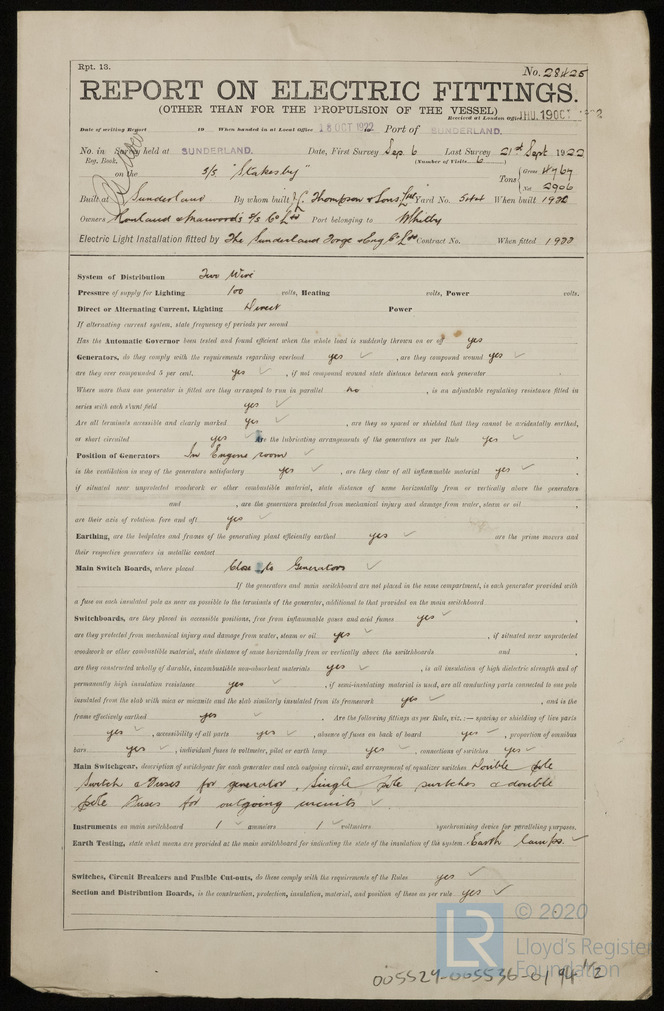 Rpt. 13.
No. 28425
REPORT ON ELECTRIC FITTINGS.
(OTHER THAN FOR THE PROPULSION OF THE VESSEL)
Received at London Office THU. 19 OCT 1922
Date of writing Report 19 When handed in at Local Office 18 OCT 1922 Port of SUNDERLAND.
No. in Survey held at SUNDERLAND. Date, First Survey Sep. 6 Last Survey 21st Sept 1922
Reg. Book. (Number of Visits 6)
on the S/S "Stakesby" Tons { Gross 4767
Net 2906
Built at Sunderland By whom built J. L. Thompson & Sons Ltd Yard No. When built 1922
Owners Rowland & Marwood's S/S Co Ltd Port belonging to Whitby
Electric Light Installation fitted by The Sunderland Forge & Eng Co Ltd Contract No. When fitted 1922
System of Distribution Two Wire
Pressure of supply for Lighting 100 volts, Heating volts, Power volts.
Direct or Alternating Current, Lighting Direct Power
If alternating current system, state frequency of periods per second
Has the Automatic Governor been tested and found efficient when the whole load is suddenly thrown on or off yes
Generators, do they comply with the requirements regarding overload yes ✓, are they compound wound yes ✓
are they over compounded 5 per cent. yes ✓, if not compound wound state distance between each generator
Where more than one generator is fitted are they arranged to run in parallel no, is an adjustable regulating resistance fitted in
series with each shunt field yes ✓
Are all terminals accessible and clearly marked yes ✓, are they so spaced or shielded that they cannot be accidentally earthed,
or short circuited yes ✓ Are the lubricating arrangements of the generators as per Rule yes ✓
Position of Generators In Engine room ✓
is the ventilation in way of the generators satisfactory yes ✓, are they clear of all inflammable material yes ✓
if situated near unprotected woodwork or other combustible material, state distance of same horizontally from or vertically above the generators
and , are the generators protected from mechanical injury and damage from water, steam or oil
are their axis of rotation fore and aft yes ✓
Earthing, are the bedplates and frames of the generating plant efficiently earthed yes ✓ are the prime movers and
their respective generators in metallic contact
Main Switch Boards, where placed Close to Generators ✓
If the generators and main switchboard are not placed in the same compartment, is each generator provided with
a fuse on each insulated pole as near as possible to the terminals of the generator, additional to that provided on the main switchboard
Switchboards, are they placed in accessible positions, free from inflammable gases and acid fumes yes ✓
are they protected from mechanical injury and damage from water, steam or oil yes ✓, if situated near unprotected
woodwork or other combustible material, state distance of same horizontally from or vertically above the switchboards and
are they constructed wholly of durable, incombustible non-absorbent materials yes ✓, is all insulation of high dielectric strength and of
permanently high insulation resistance yes ✓, if semi-insulating material is used, are all conducting parts connected to one pole
insulated from the slab with mica or micanite and the slab similarly insulated from its framework yes ✓, and is the
frame effectively earthed yes ✓. Are the following fittings as per Rule, viz.:— spacing or shielding of live parts
yes ✓, accessibility of all parts yes ✓, absence of fuses on back of board yes ✓, proportion of omnibus
bars yes ✓, individual fuses to voltmeter, pilot or earth lamp yes ✓, connections of switches yes ✓
Main Switchgear, description of switchgear for each generator and each outgoing circuit, and arrangement of equalizer switches Double pole
Switch & Fuses for generator, Single pole switches & double
pole Fuses for outgoing circuits ✓.
Instruments on main switchboard 1 ✓ ammeters 1 ✓ voltmeters synchronising device for paralleling purposes.
Earth Testing, state what means are provided at the main switchboard for indicating the state of the insulation of the system Earth lamps. ✓
Switches, Circuit Breakers and Fusible Cut-outs, do these comply with the requirements of the Rules yes ✓
Section and Distribution Boards, is the construction, protection, insulation, material, and position of these as per rule yes ✓
LR
© 2020
Lloyd's Register
Foundation
005529-005536-0194 1/2